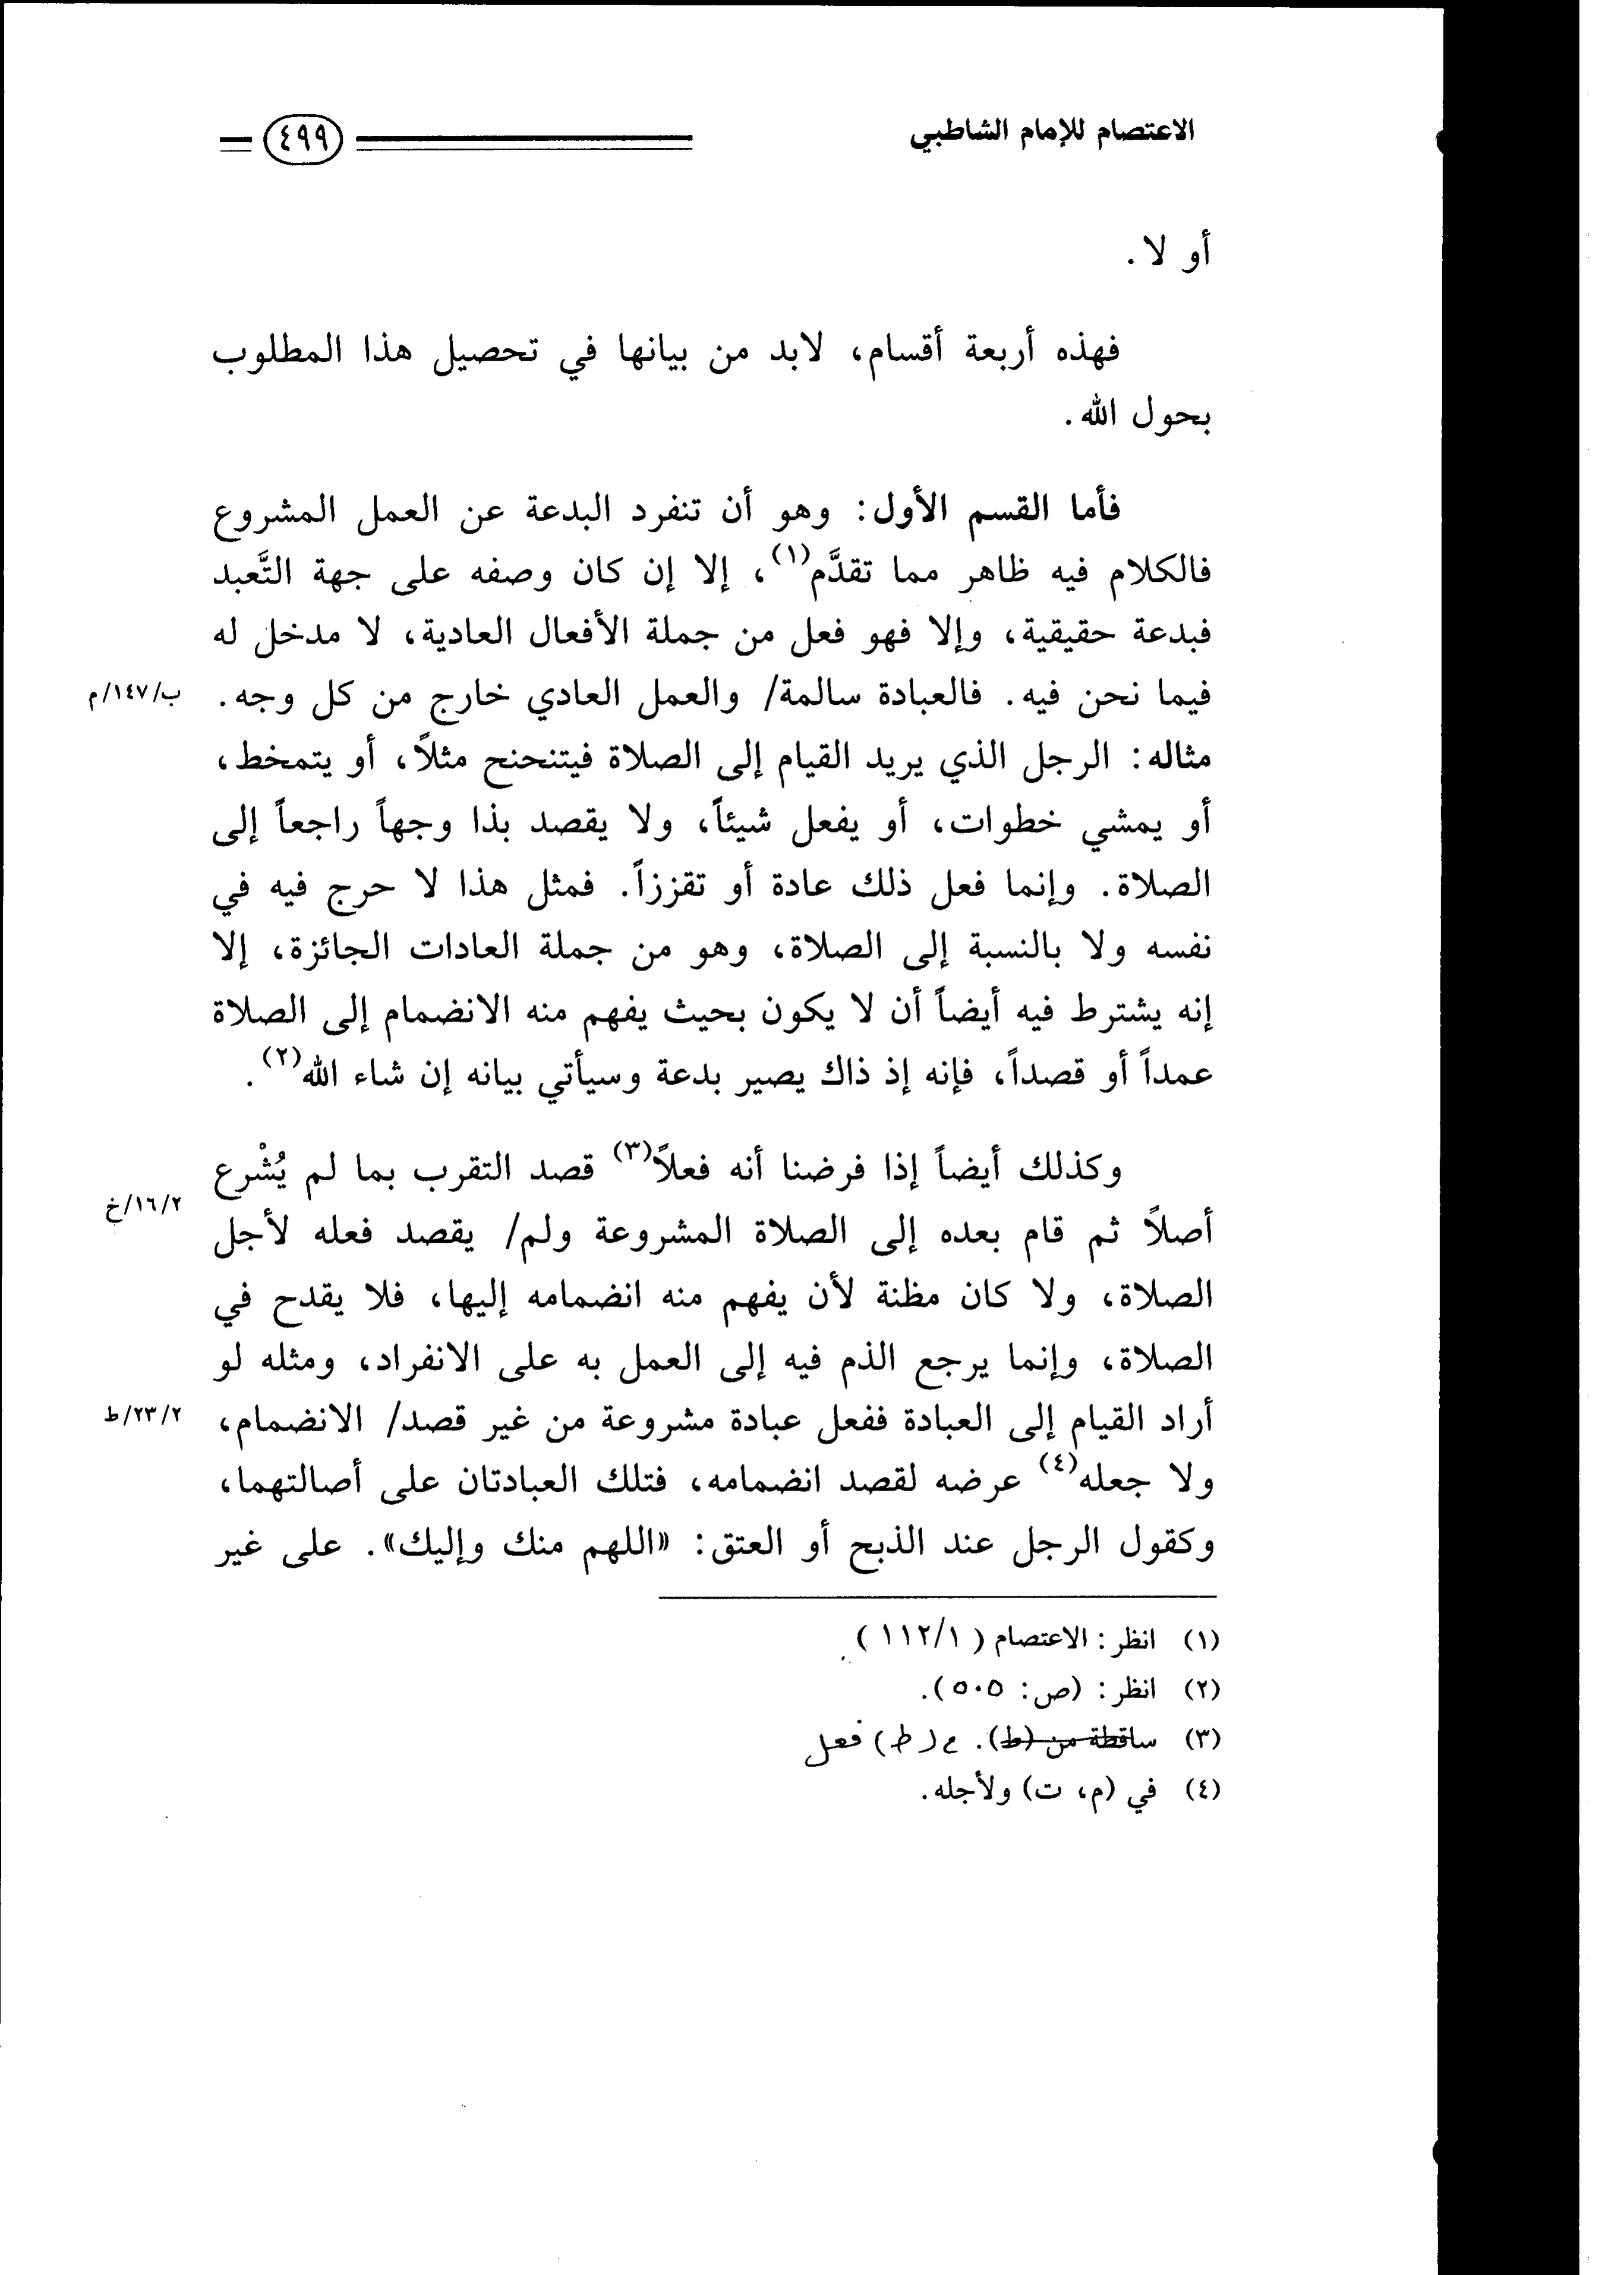 الاعتصام للإمام الشاطبي
٤٩٩
أو لا.
فهذه أربعة أقسام، لابد من بيانها في تحصيل هذا المطلوب
بحول الله.
فأما القسم الأول: وهو أن تنفرد البدعة عن العمل المشروع
فالكلام فيه ظاهر مما تقدَّم(١)، إلا إن كان وصفه على جهة التَّعبد
فبدعة حقيقية، وإلا فهو فعل من جملة الأفعال العادية، لا مدخل له
فيما نحن فيه. فالعبادة سالمة/ والعمل العادي خارج من كل وجه.
ب/١٤٧/م
مثاله: الرجل الذي يريد القيام إلى الصلاة فيتنحنح مثلاً، أو يتمخط،
أو يمشي خطوات، أو يفعل شيئاً، ولا يقصد بذا وجهاً راجعاً إلى
الصلاة. وإنما فعل ذلك عادة أو تقززاً. فمثل هذا لا حرج فيه في
نفسه ولا بالنسبة إلى الصلاة، وهو من جملة العادات الجائزة، إلا
إنه يشترط فيه أيضاً أن لا يكون بحيث يفهم منه الانضمام إلى الصلاة
عمداً أو قصداً، فإنه إذ ذاك يصير بدعة وسيأتي بيانه إن شاء الله(٢).
وكذلك أيضاً إذا فرضنا أنه فعلاً(٣) قصد التقرب بما لم يُشْرع
٢/١٦/خ
أصلاً ثم قام بعده إلى الصلاة المشروعة ولم/ يقصد فعله لأجل
الصلاة، ولا كان مظنة لأن يفهم منه انضمامه إليها، فلا يقدح في
الصلاة، وإنما يرجع الذم فيه إلى العمل به على الانفراد، ومثله لو
أراد القيام إلى العبادة ففعل عبادة مشروعة من غير قصد/ الانضمام،
٢/٢٣/ط
ولا جعله(٤) عرضه لقصد انضمامه، فتلك العبادتان على أصالتهما،
وكقول الرجل عند الذبح أو العتق: «اللهم منك وإليك». على غير
(١) انظر: الاعتصام (١/١١٢)
(٢) انظر: (ص: ٥٠٥).
(٣) ساقطة من (ط). في (ط) فعل
(٤) في (م، ت) ولأجله.